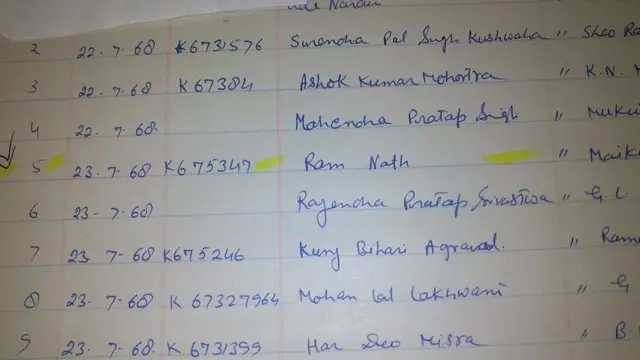 2 22.7.68 K6731576 Surendha Pal Singh Kushwaha " Sheo Ra
3 22.7.68 K67384 Ashok Kumar Mohotra " K.N. M
4 22.7.68. Mahendha Pratap Singh " Muku
5 23.7.68 K675347 Ram Nath " Maik
6 23-7.68 Rajendha Pratap Srivastva " G. L
7 23 7-68 K675246 Kunj Bihari Agrawal. " Rame
8 23-7-68 K 67327964 Mohan Lal Lakhwani " G
9 23.7.68. K 6731399 Har Deo Misra " B.